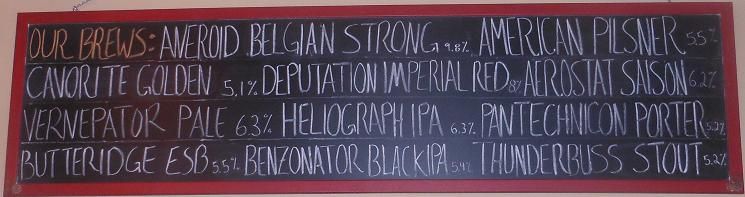 OUR BREWS: ANEROID BELGIAN STRONG 9.8% AMERICAN PILSNER 5.5%
CAVORITE GOLDEN 5.1% DEPUTATION IMPERIAL RED 8% AEROSTAT SAISON 6.2%
VERNEPATOR PALE 6.3% HELIOGRAPH IPA 6.3% PANTECHNICON PORTER 5.2%
BUTTERIDGE ESB 5.5% BENZONATOR BLACK IPA 5.4% THUNDERBUSS STOUT 5.2%